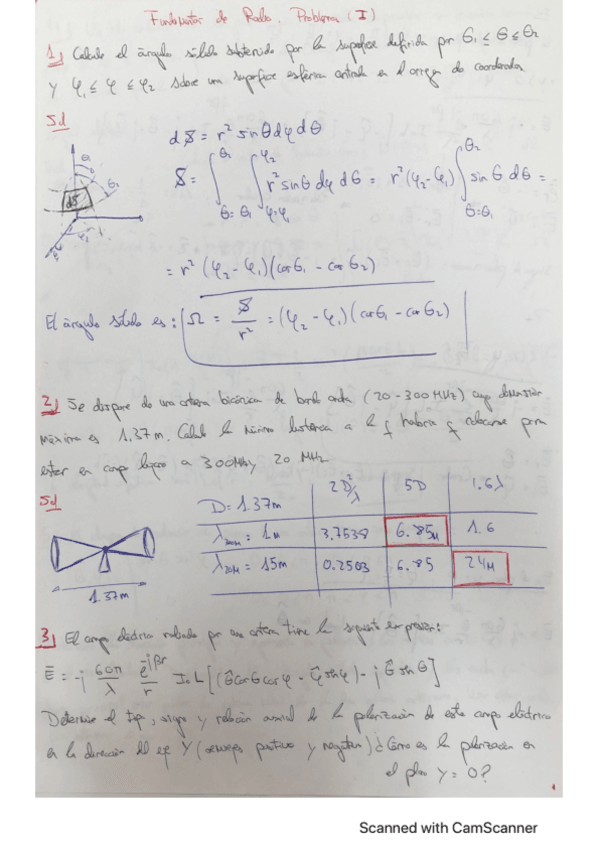 Fundamentos de Radio. Problemas (I)
1) Calcule el ángulo sólido subtendido por la superficie definida por θ₁ ≤ θ ≤ θ₂
y φ₁ ≤ φ ≤ φ₂ sobre una superficie esférica centrada en el origen de coordenadas
Sol
dS = r² sinθ dφ dθ
S = ∫θ=θ₁^θ₂ ∫φ=φ₁^φ₂ r² sinθ dφ dθ = r² (φ₂ - φ₁) ∫θ=θ₁^θ₂ sinθ dθ =
dS
= r² (φ₂ - φ₁)(cosθ₁ - cosθ₂)
El ángulo sólido es: Ω = S/r² = (φ₂ - φ₁)(cosθ₁ - cosθ₂)
2) Se dispone de una antena bicónica de banda ancha (20-300 MHz) cuya dimensión
máxima es 1.37m. Calcule la mínima distancia a la q habría q colocarse para
estar en campo lejano a 300MHz y 20 MHz
Sol
D = 1.37m 2D²/λ 5D 1.6λ
λ₃₀₀M = 1m 3.7538 6.85m 1.6
λ₂₀M = 15m 0.2503 6.85 24m
1.37m
3) El campo eléctrico radiado por una antena tiene la siguiente expresión:
E = -j 60π/λ e^-jβr/r I₀ L [(θ̂ cosθ cosφ - φ̂ sinφ) - j θ̂ sinθ]
Determine el tipo, signo y relación axial de la polarización de este campo eléctrico
en la dirección del eje Y (semiejes positivo y negativo) ¿Cómo es la polarización en
el plano Y=0?
Scanned with CamScanner